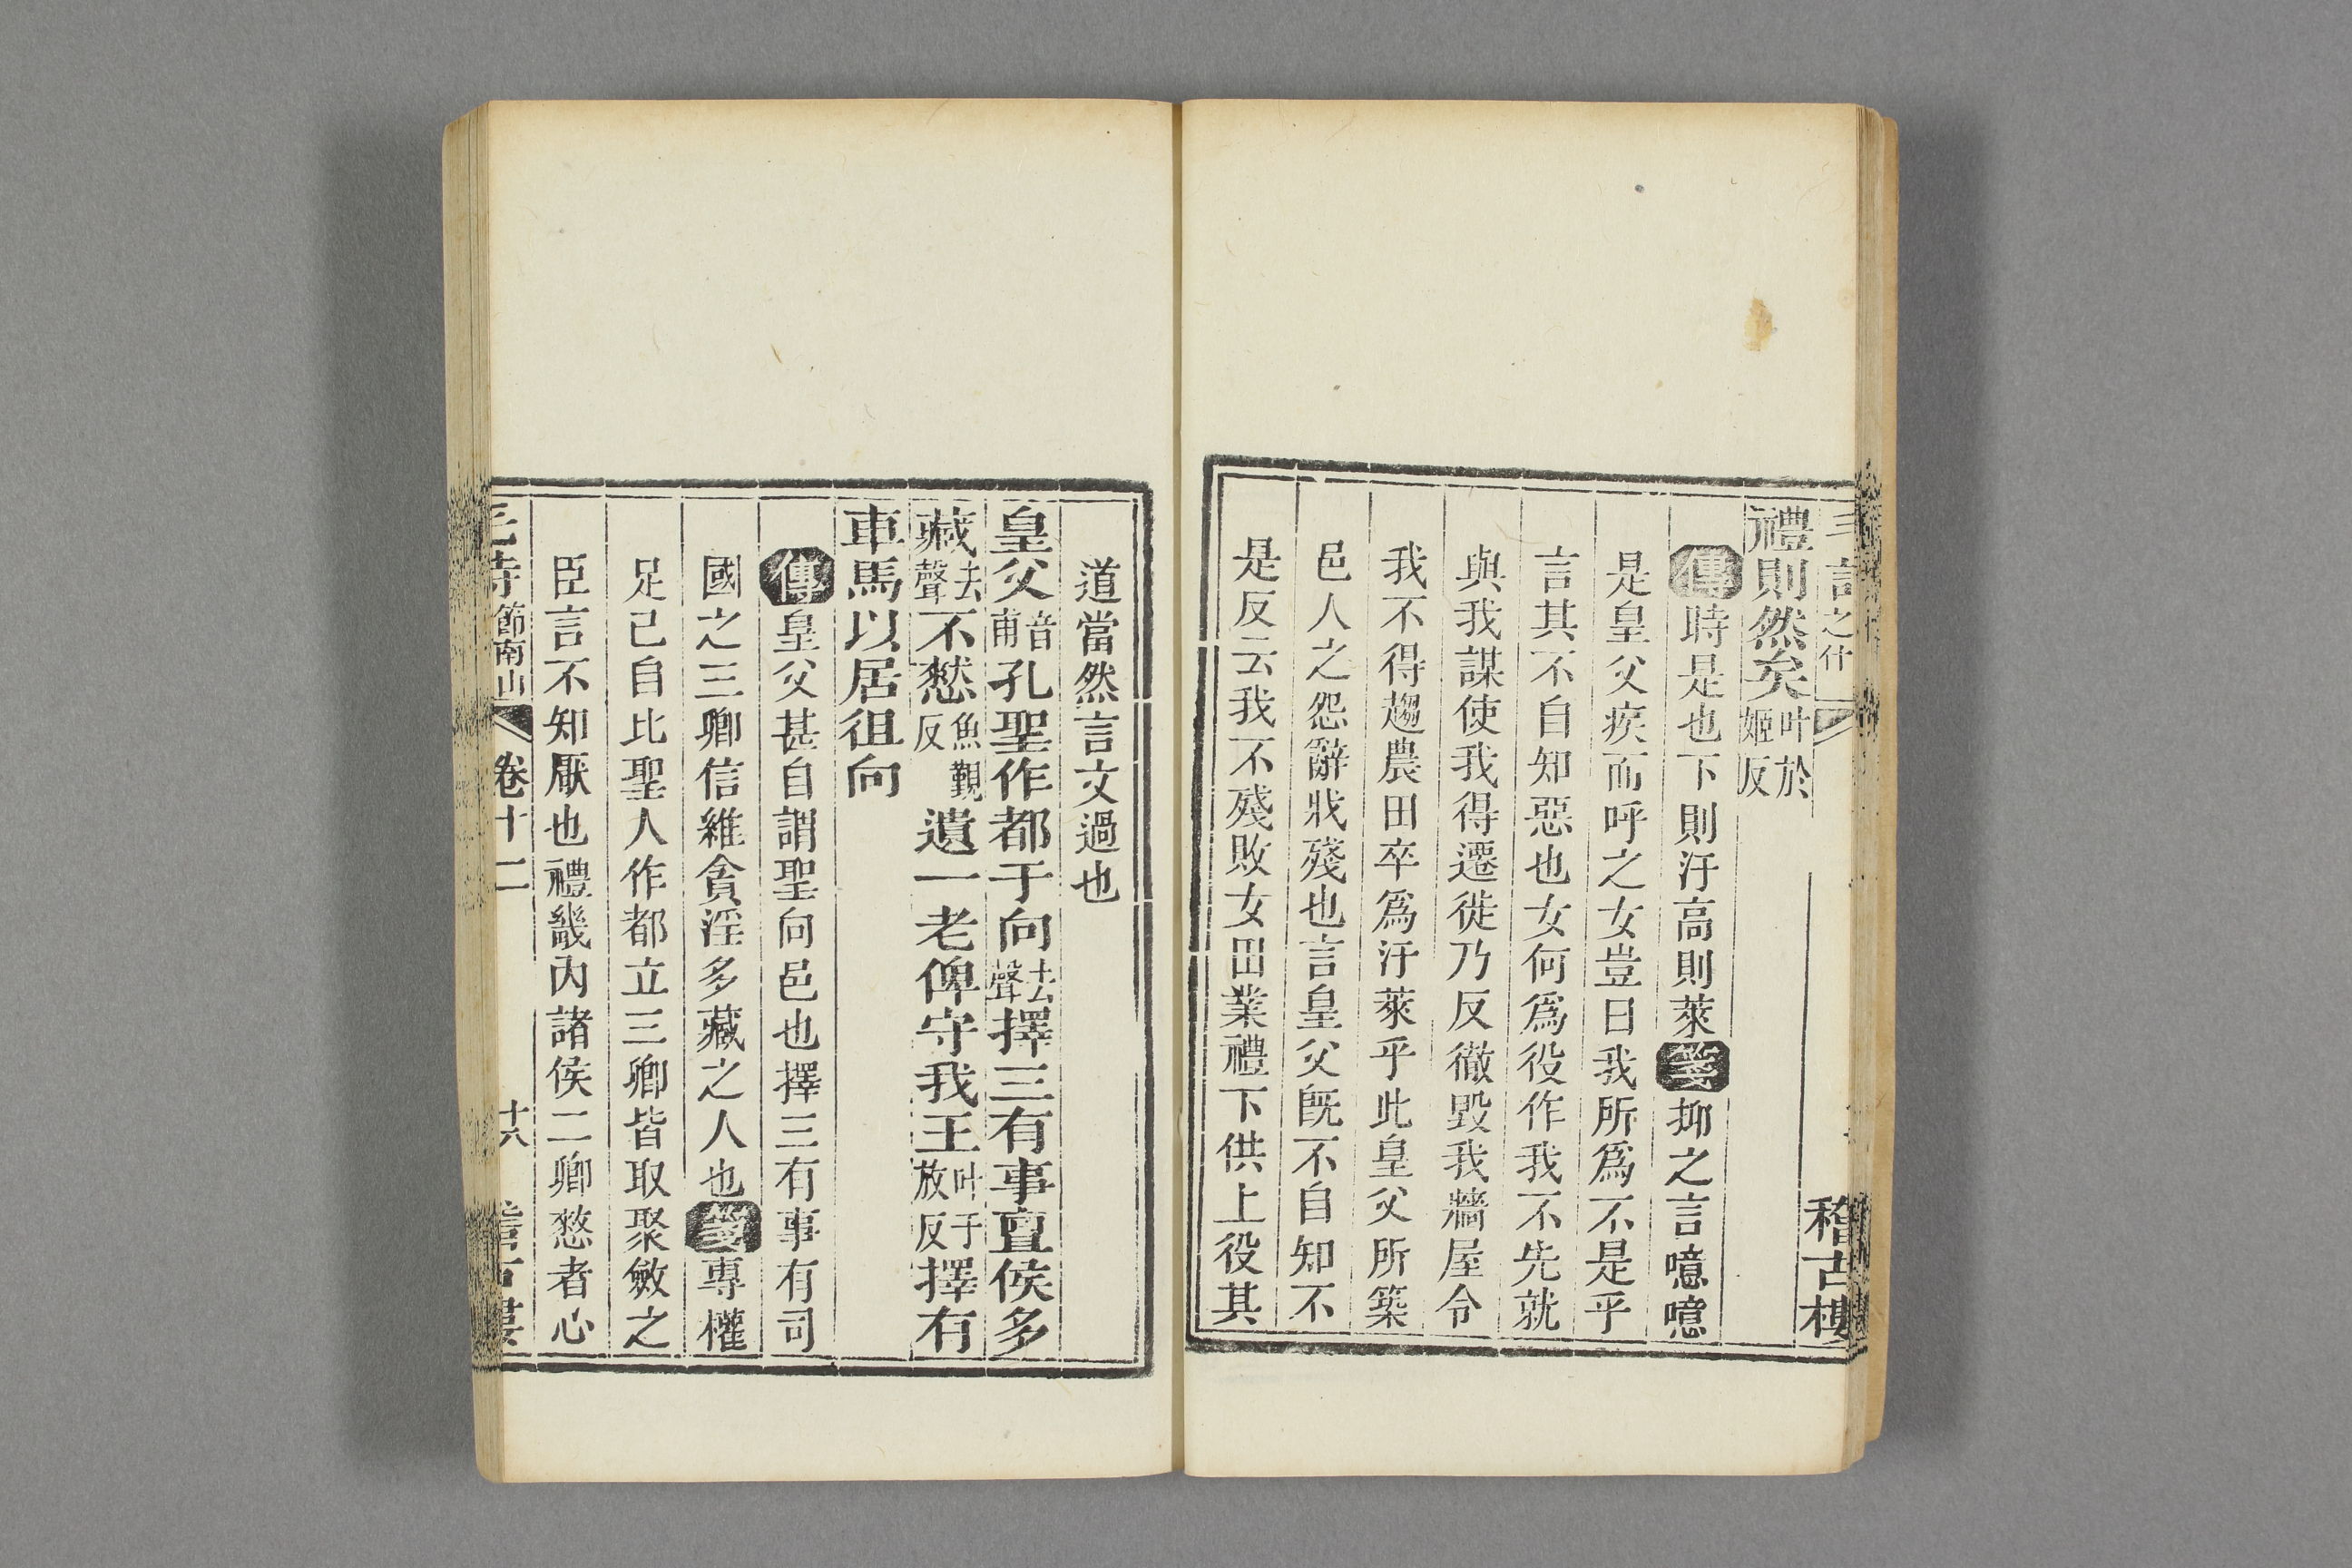 禮則然矣叶於姬反
傳時是也下則汙高則萊箋抑之言噫噫
是皇父疾而呼之女豈曰我所爲不是乎
言其不自知惡也女何爲役作我不先就
與我謀使我得遷徙乃反徹毀我牆屋令
我不得趨農田卒爲汙萊乎此皇父所築
邑人之怨辭戕殘也言皇父旣不自知不
是反云我不殘敗女田業禮下供上役其
道當然言文過也
皇父音甫孔聖作都于向去聲擇三有事亶侯多
藏去聲不憖魚覲反遺一老俾守我王叶于放反擇有
車馬以居徂向
傳皇父甚自謂聖向邑也擇三有事有司
國之三卿信維貪淫多藏之人也箋專權
足己自比聖人作都立三卿皆取聚斂之
臣言不知厭也禮畿內諸侯二卿憖者心
節南山 卷十二 十六
之什 稽古樓